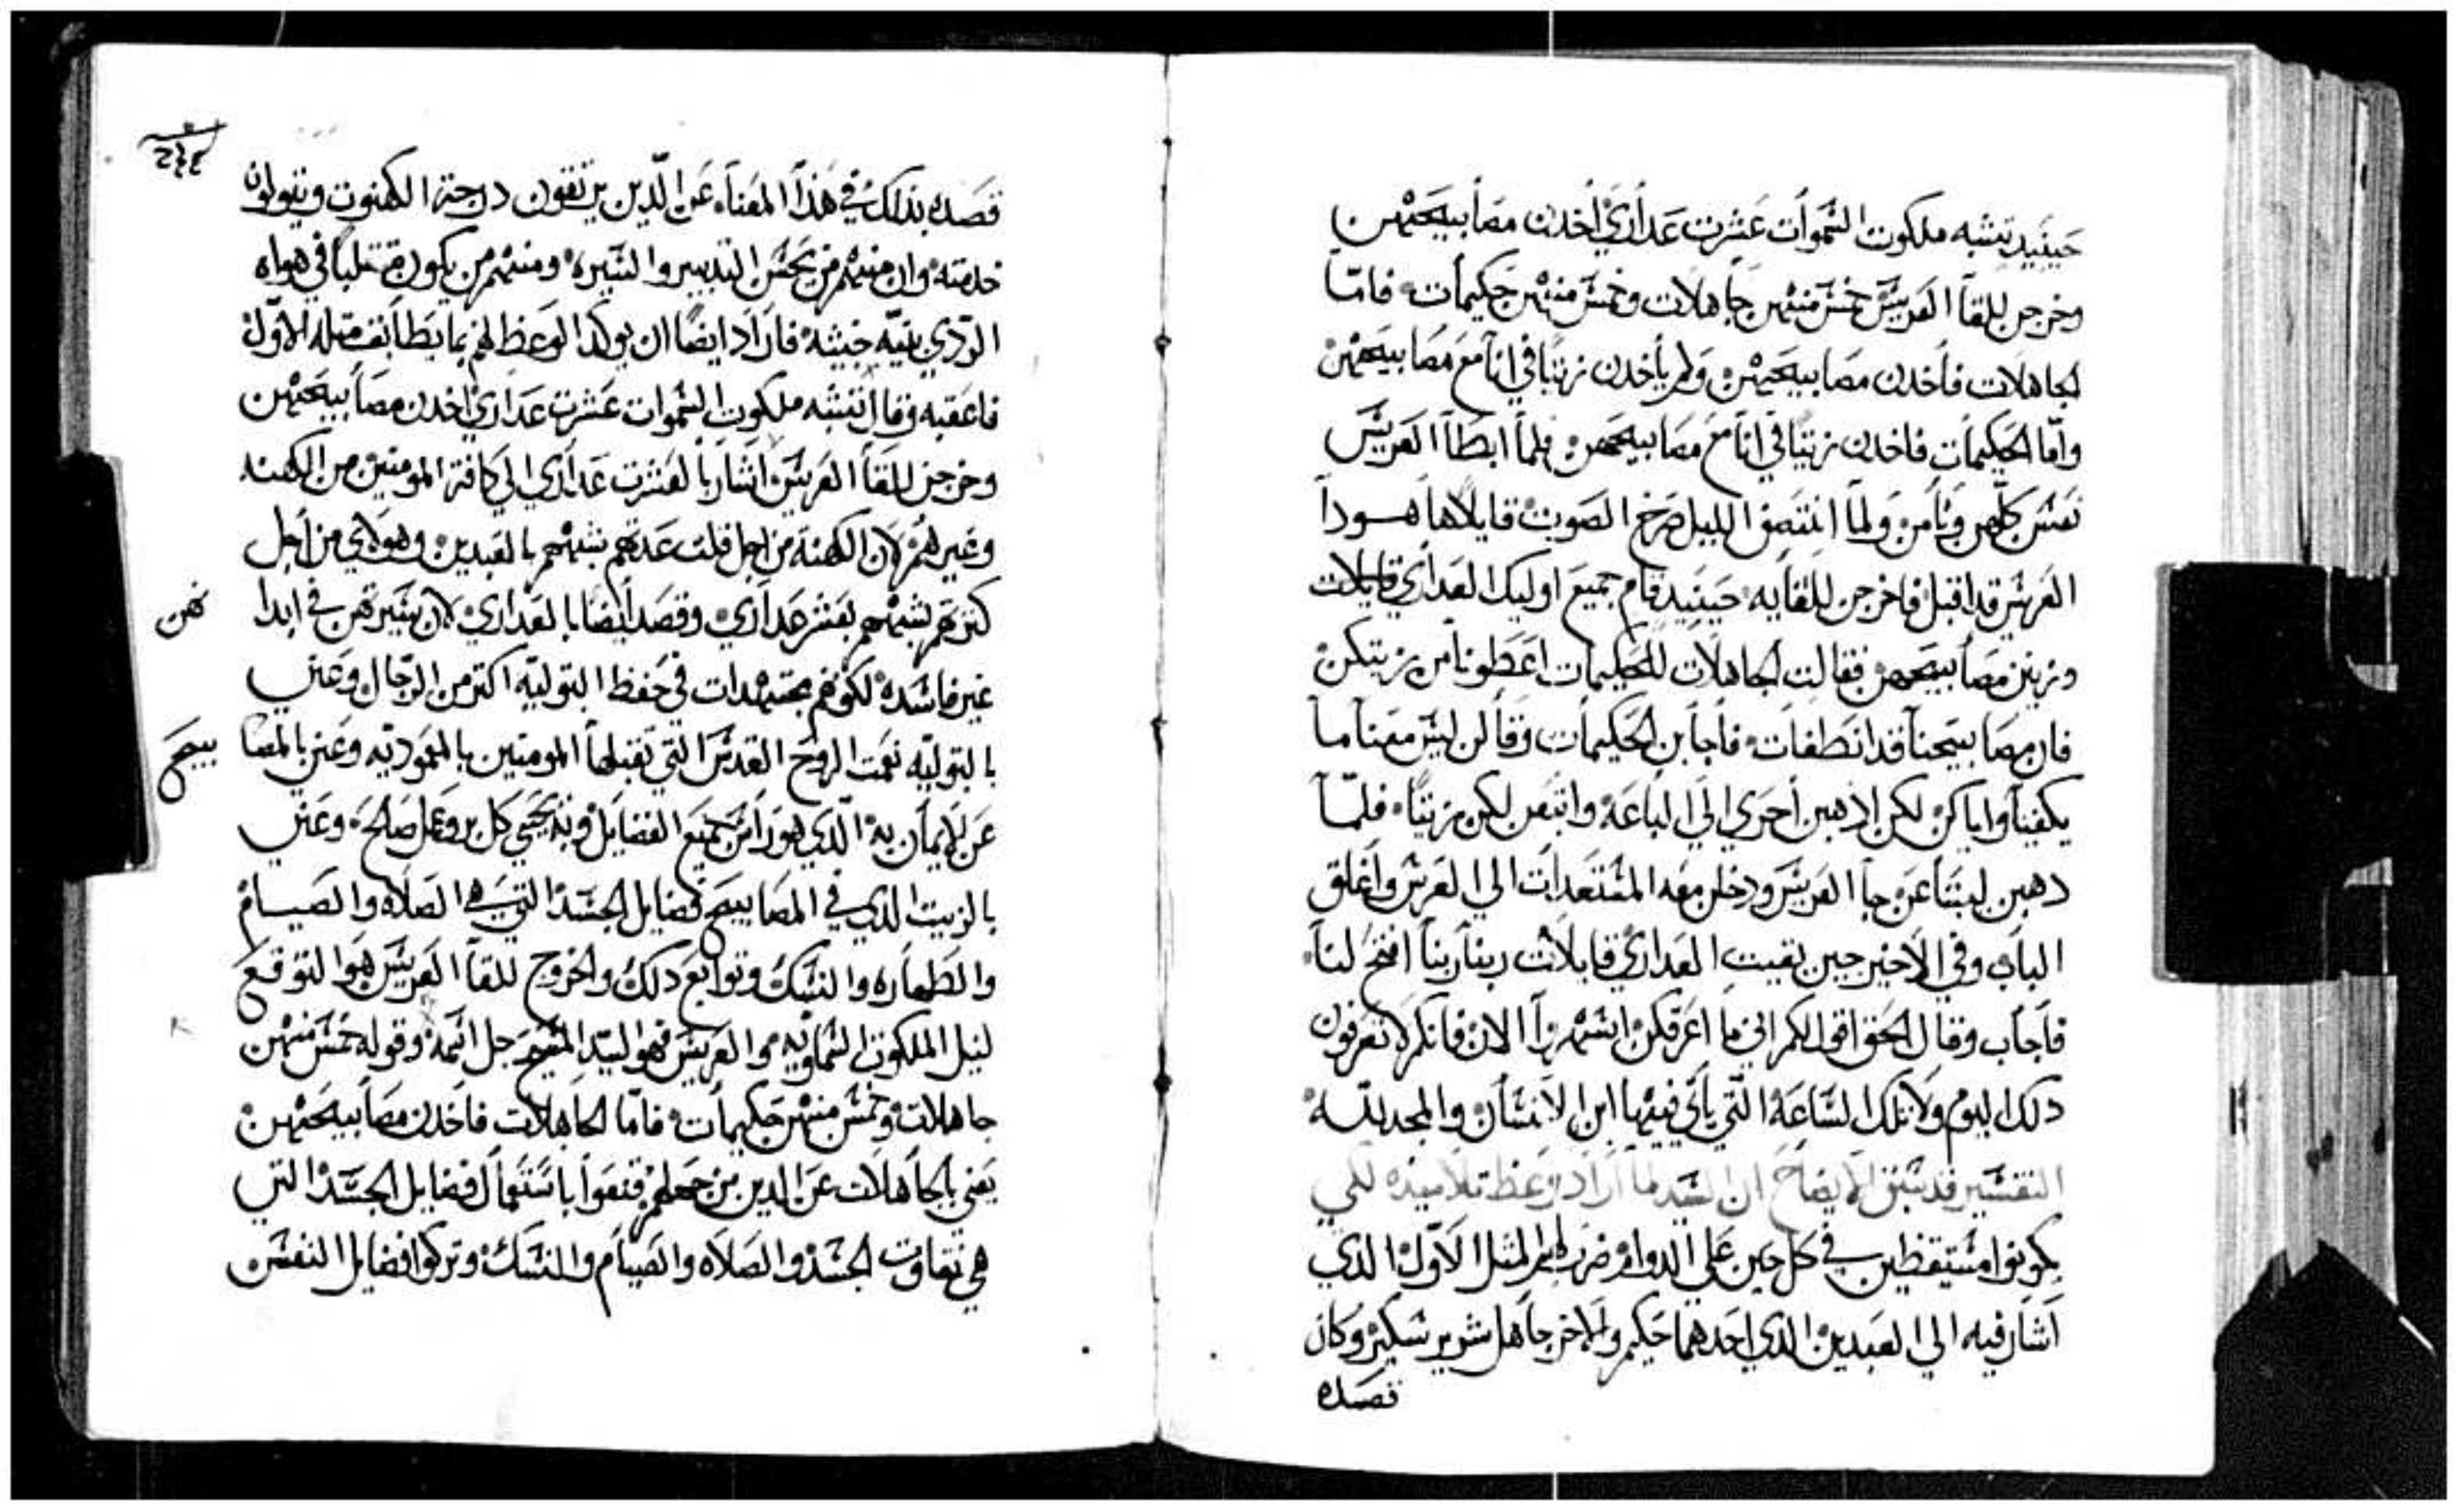 حينيد تشبه ملكوت السموات عشرت عداري أخدن مصابيحهن
وخرجن للقا العريس خمس منهن جاهلات وخمس منهن حكيمات فامّا
الجاهلات فأخدن مصابيحهن ولم يأخدن زيتًا في انآ مع مصابيحهن
وامّا الحكيمات فاخدن زيتًا في انآ مع مصابيحهن فلما ابطا العريس
نعس كلهن ونامن ولما انتصف الليل صرخ الصوت قايلا ها هودا
العريس قد اقبل فاخرجن للقايه حينيد قام جميع اوليك العداري قايلات
وزينن مصابيحهن فقالت الجاهلات للحكيمات اعطونا من زيتكن
فان مصابيحنا قد انطفات فأجابن الحكيمات وقالن ليس معنا ما
يكفينا واياكن لكن ادهبن أحري الي الباعه وابتعن لكن زيتًا فلمّا
دهبن ليبتاعن جا العريس ودخلن معه المستعدات الي العرس وأغلق
الباب وفي الاخير جين بقيت العداري قايلات ربنا ربنا افتح لنا
فأجاب وقال الحق اقول لكم اني ما اعرفكن اسهروا الان فانكم لا تعرفون
دلك اليوم ولا تلك الساعه التي يأتي فيها ابن الانسان والمجد لله
التفسير قد سبق الايضاح ان السيد لما اراد وعظ تلاميذه لكي
يكونوا مستيقظين في كل حين علي الدوام ضرب لهم المثل الاوّل الذي
اشار فيه الي العبدين الذي احدهما حكيم والاخر جاهل شرير سكير وكان
قصده
٢٤٤
قصده بذلك في هذا المعناه عن الّدين يرتقون درجة الكهنوت ويتولون
خدمته وان منهم من يحسن التدبير والسيره ومنهم من يكون متقلبًا في هواه
الردي بنيّه خبيثه فاراد ايضًا ان يوكد الوعظ لهم بما يطابق مثله الاوّل
فاعقبه وقال تشبه ملكوت السموات عشرت عداري اخدن مصابيحهن
وخرجن للقا العريس اشار بالعشرت عداري الي كافة المومنين من الكهنه
وغيرهم لان الكهنة من اجل قلت عدتهم شبههم بالعبدين وهولاي من أجل
كترتهم شبههم بعشر عداري وقصد أيضا بالعداري لان سيرتهن في ابدا
غير فاسده لكونهم مجتهدات في حفظ البتوليه اكتر من الرجال وعني
بالبتوليه نعمت الروح القدس التي تقبلها المومنين بالمعموديه وعني بالمصا
بيح
عن الايمان به الّدي هو راس جميع الفضايل وبه يحيي كل بر وعمل صالح وعني
بالزيت الدي في المصابيح فضايل الجسد التي هي الصلاه والصيام
والطهاره والنسك وتوابع دلك والخروج للقا العريس هو التوقع
لنيل الملكوت السماويه والعريس فهو السيد المسيح جل اسمه وقوله خمس منهن
جاهلات وخمس منهن حكيمات فامّا الجاهلات فاخدن مصابيحهن
يعني بالجاهلات عن الدين من جهلهم قنعوا باستعمال فضايل الجسد التي
هي نقاوت الجسد والصلاه والصيام والنسك وتركوا فضايل النفس